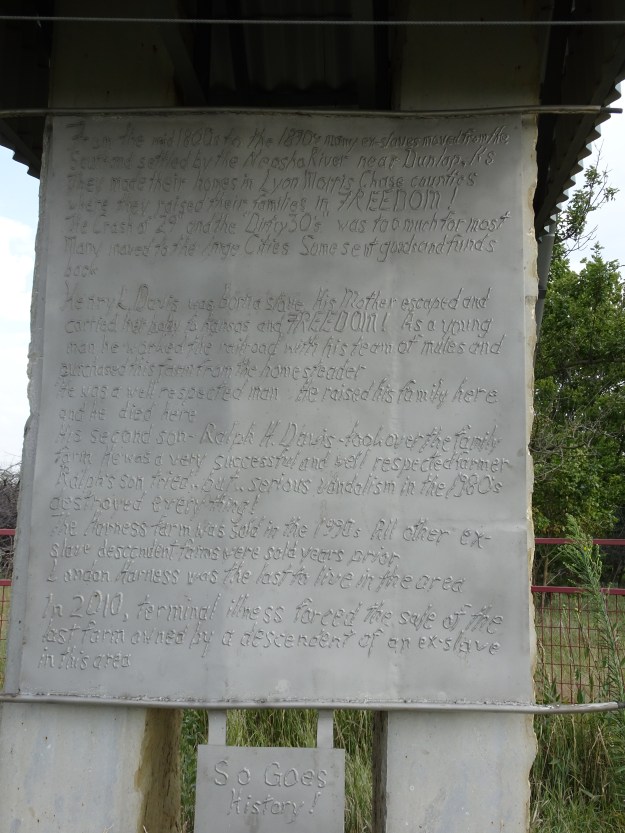 From the mid 1800s to the 1870's many ex-slaves moved from the
South and settled by the Neosho River near Dunlap, KS
They made their homes in Lyon Morris Chase counties
where they raised their families in FREEDOM!
The Crash of 29 and the "Dirty 30's" was too much for most
Many moved to the large Cities Some sent goods and funds
back
Henry L. Davis was born a slave His Mother escaped and
carried him to Kansas and FREEDOM! As a young
man he worked the railroad with his team of mules and
purchased this farm from the homesteader
He was a well respected man He raised his family here
and he died here
His second son - Ralph H. Davis - took over the family
farm he was a very successful and well respected farmer
Ralph's son tried.. but.. serious vandalism in the 1980's
destroyed everything!
The Harness farm was sold in the 1990s All other ex-
slave descendent farms were sold years prior
Landon Harness was the last to live in the area
In 2010, terminal illness forced the sale of the
last farm owned by a descendent of an ex-slave
in this area
So Goes
History!